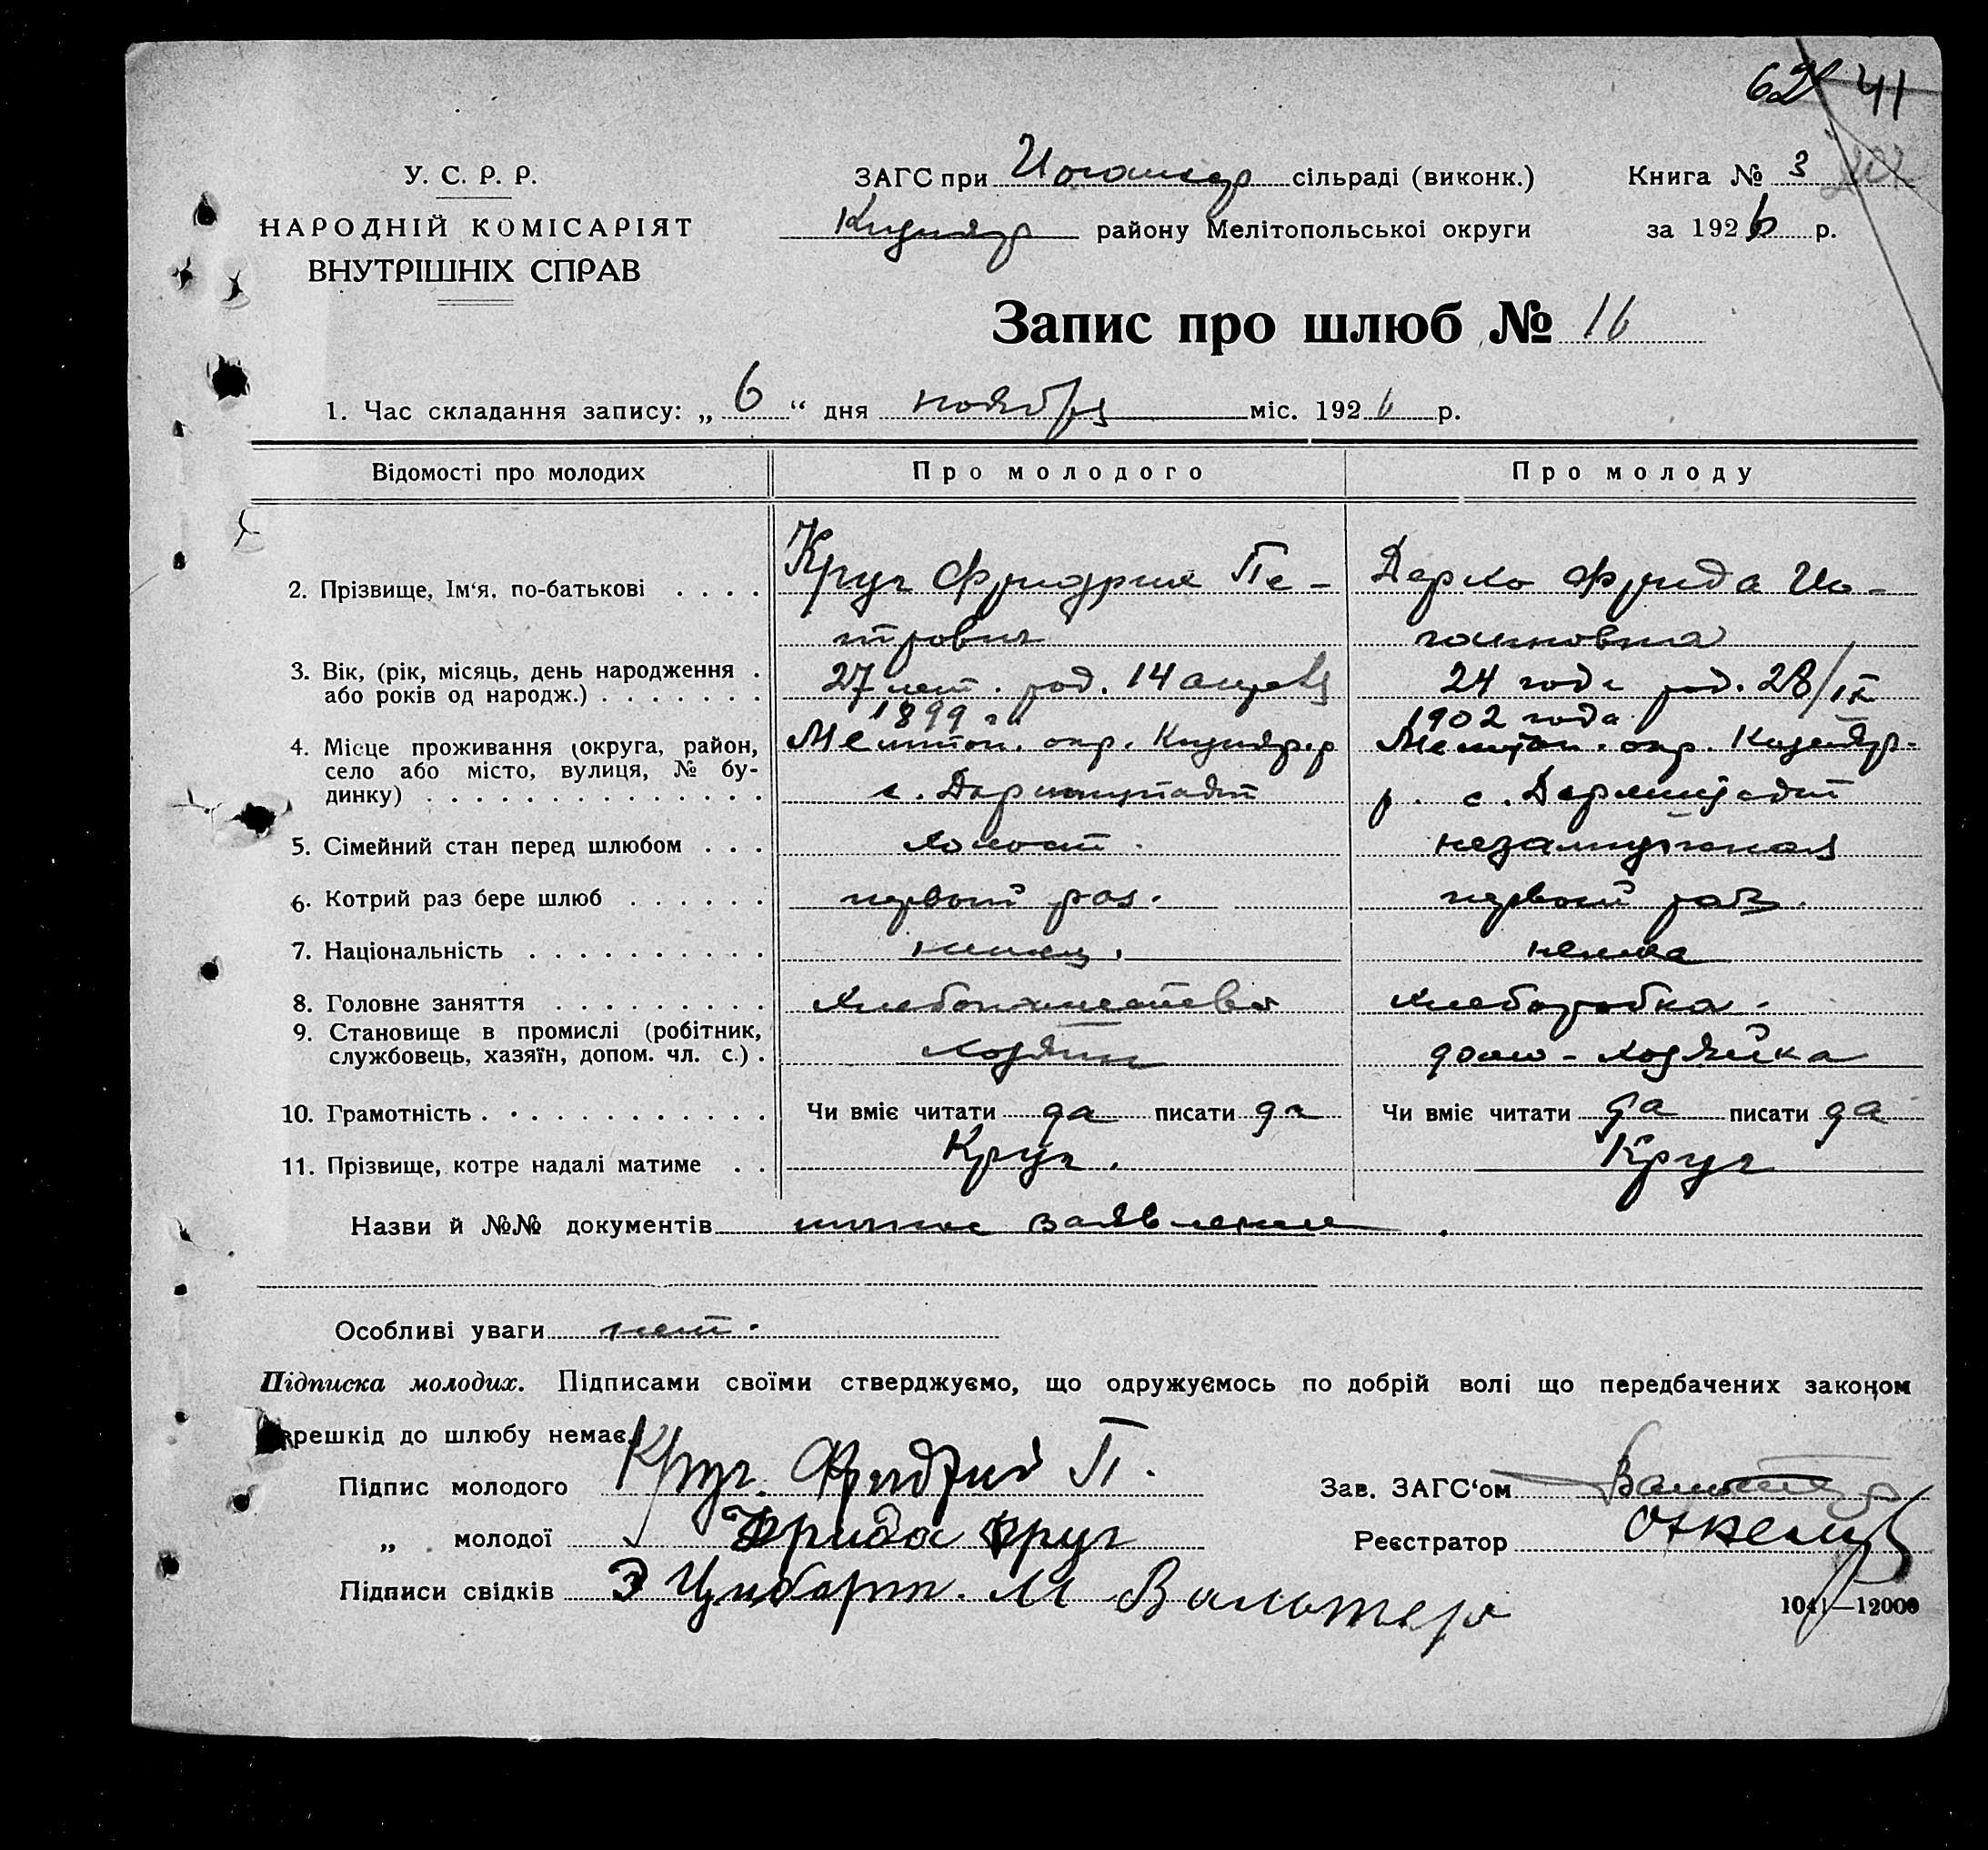 62 41
У. С. Р. Р.
НАРОДНІЙ КОМІСАРІЯТ
ВНУТРІШНІХ СПРАВ
ЗАГС при сільраді (виконк.)
району Мелітопольської округи
Книга № 3
за 1926 р.
Запис про шлюб № 16
1. Час складання запису: „ 6 “ дня ноября міс. 1926 р.
Відомості про молодих Про молодого Про молоду
2. Прізвище, Ім‘я, по-батькові . . . . Круг Фридрих Пе- Фрида Ио-
трович ганновна
3. Вік, (рік, місяць, день народження . 27 лет. род. 14 августа 24 года род. 28/IX
або років од народж.) . . . . . . . 1899 г. 1902 года
4. Місце проживання (округа, район, Мелитоп. окр. Мелитоп. окр.
село або місто, вулиця, № бу- с. Дармштадт р. с. Дармштадт
динку) . . . . . . . . . . . . . .
5. Сімейний стан перед шлюбом . . . холост. незамужная
6. Котрий раз бере шлюб . . . . . . первый раз. первый раз.
7. Національність . . . . . . . . . . немец. немка
8. Головне заняття . . . . . . . . . хлебопашество хлеборобка.
9. Становище в промислі (робітник,
службовець, хазяїн, допом. чл. с.) . хозяин домо-хозяйка
10. Грамотність . . . . . . . . . . . . Чи вміє читати да писати да Чи вміє читати да писати да
11. Прізвище, котре надалі матиме . . Круг. Круг
Назви й №№ документів заявление
Особливі уваги нет.
Підписка молодих. Підписами своїми стверджуємо, що одружуємось по добрій волі що передбачених законом
решкід до шлюбу немає.
Підпис молодого Круг. П.
Зав. ЗАГС‘ом
„ молодої Фрида Круг
Реєстратор
Підписи свідків Э Цибарт. М Вальтер
1041—12000